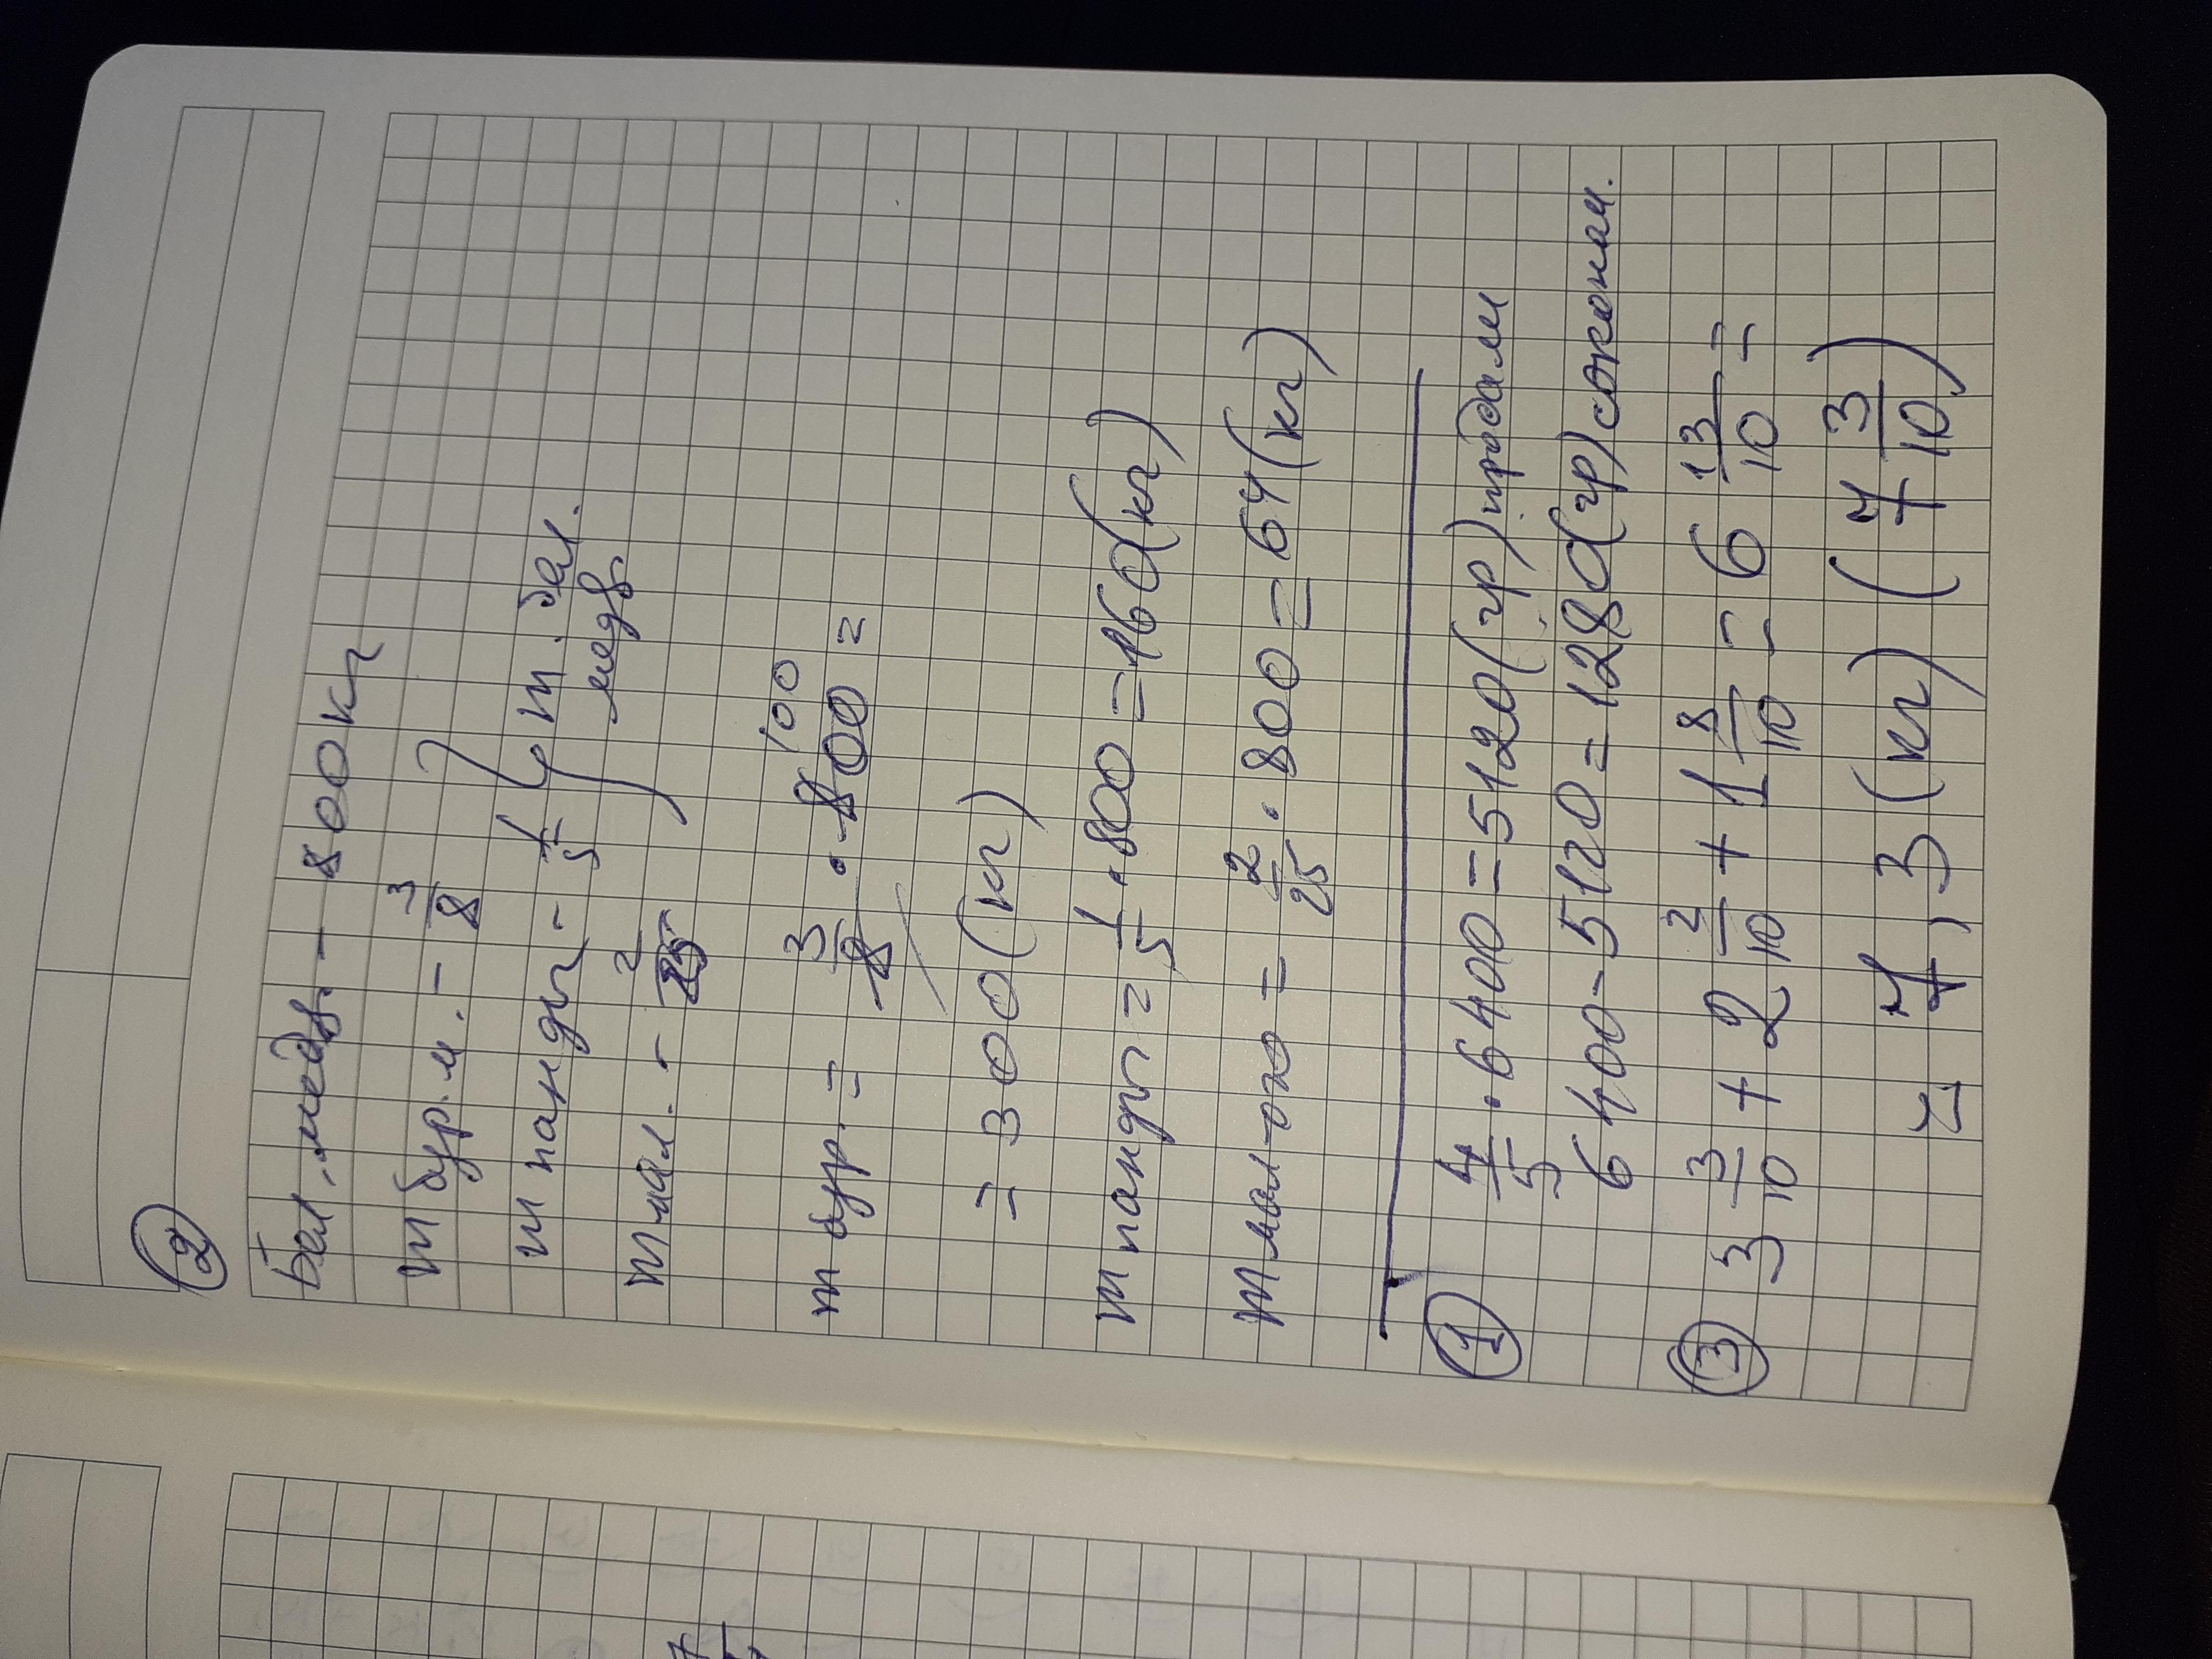 ②
Бел. медв. – 800 кг
m бур. м. – 3/8
m панды – 1/5 } m. бел. медв.
m мал. – 2/25
m бур. = 3/8 · 800 = 100
= 300 (кг)
m панды = 1/5 · 800 = 160 (кг)
m мал = 2/25 · 800 = 64 (кг)
① 4/5 · 6400 = 5120 (гр) продали
6400 – 5120 = 1280 (гр) сэконом.
③ 3 3/10 + 2 2/10 + 1 8/10 = 6 13/10 =
= 7,3 (кг) (7 3/10)
7